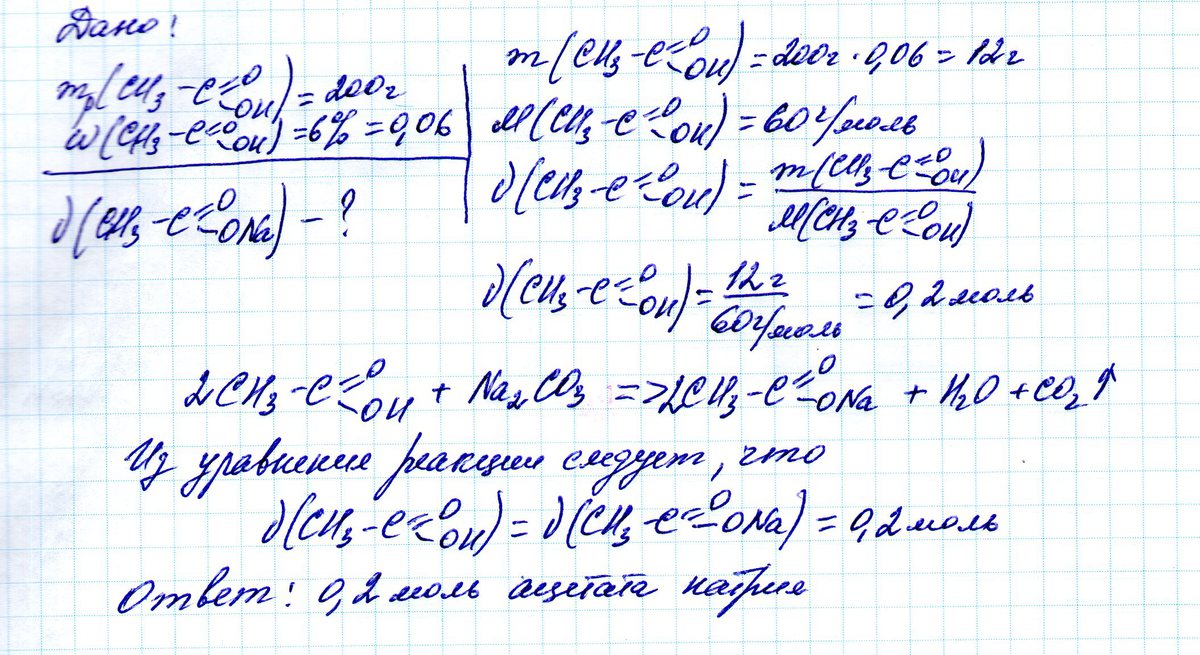 Дано:
mр(CH3-C=O-OH) = 200г
ω(CH3-C=O-OH) = 6% = 0,06
ν(CH3-C=O-ONa) - ?
m(CH3-C=O-OH) = 200г · 0,06 = 12г
M(CH3-C=O-OH) = 60г/моль
ν(CH3-C=O-OH) = m(CH3-C=O-OH) / M(CH3-C=O-OH)
ν(CH3-C=O-OH) = 12г / 60г/моль = 0,2 моль
2CH3-C=O-OH + Na2CO3 => 2CH3-C=O-ONa + H2O + CO2↑
Из уравнения реакции следует, что
ν(CH3-C=O-OH) = ν(CH3-C=O-ONa) = 0,2 моль
Ответ: 0,2 моль ацетата натрия